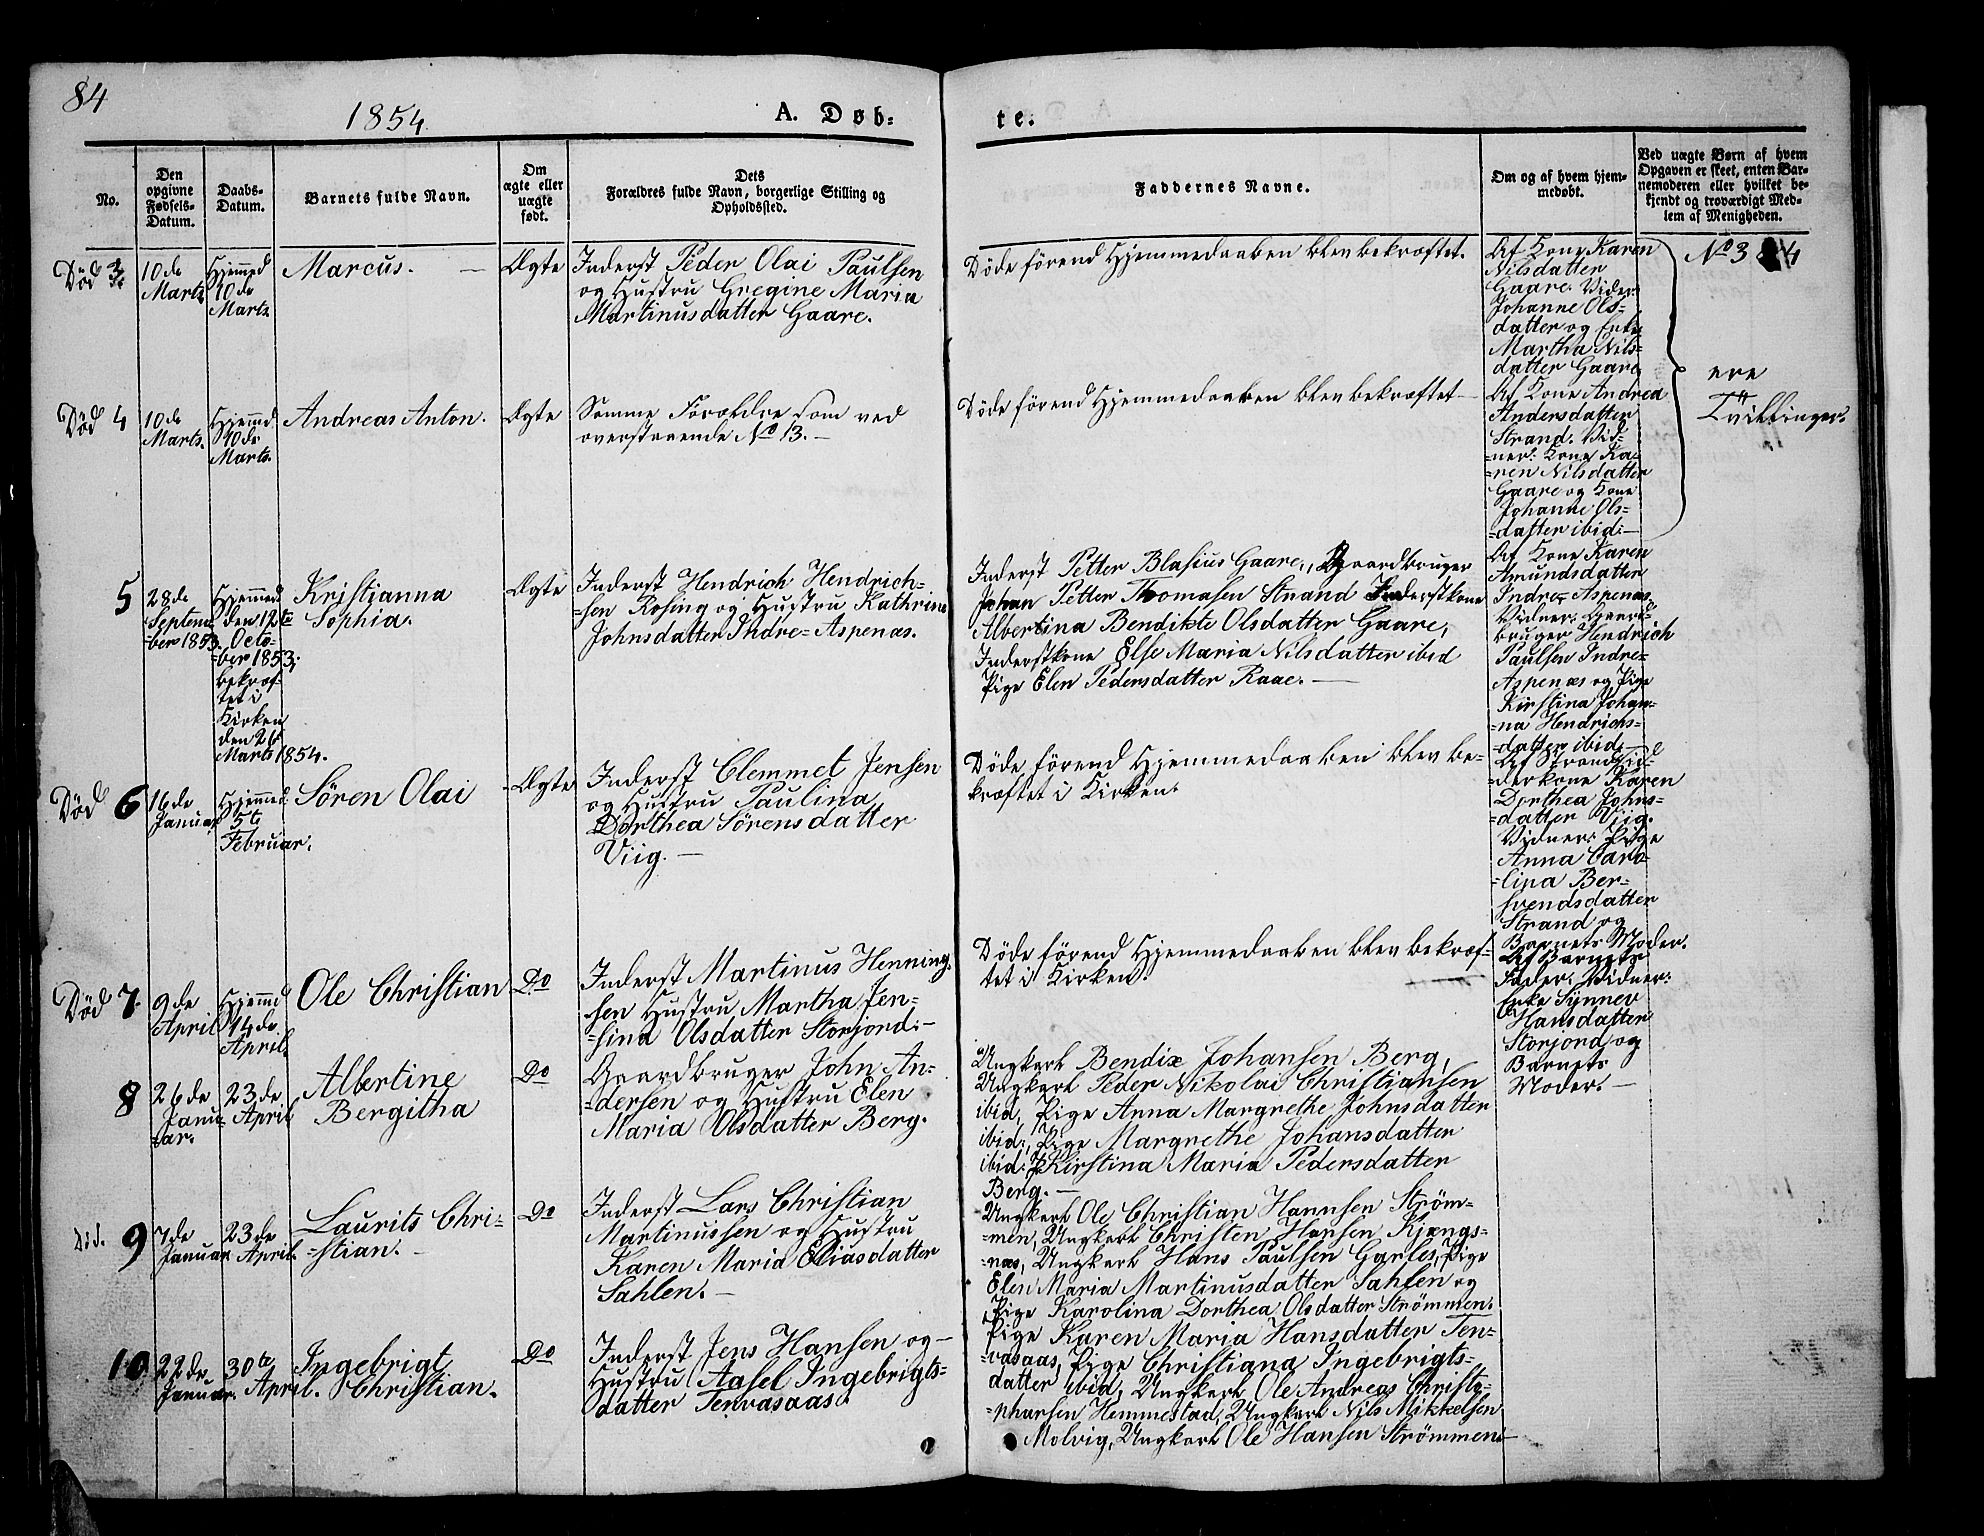 84
1854.
A. Døb-
te.
No.
Den
opgivne
Fødsels-
Datum.
Daabs-
Datum.
Barnets fulde Navn.
Om
ægte eller
uægte
født.
Dets
Forældres fulde Navn, borgerlige Stilling og
Opholdssted.
Faddernes Navne.
Om og af hvem hjem-
medøbt.
Ved uægte Børn af hvem
Opgaven er skeet, enten Bar-
nemoderen eller hvilket be-
kjendt og troværdigt Med-
lem af Menigheden.
Død 3.
10de
Marts
Hjemmed
10de
Marts.
Marcus. —
Ægte
Inderst Peder Olai Paulsen
og Hustru Gregine Maria
Martinusdatter Gaare.
Døde førend Hjemmedaaben blev bekræftet.
Af Kone Karen
Nilsdatter
Gaare. Vidner
Johanne Ols-
datter og Enke
Martha Nils-
datter Gaare
No 3 & 4
ere
Tvillinger.
Død 4
10de
Marts.
Hjemmd
10de
Marts.
Andreas Anton.
Ægte
Samme Forældre som ved
overstaaende No 13. —
Døde førend Hjemmedaaben blev bekræftet —
Af Kone Andrea
Andersdatter
Strand. Vid-
ner: Kone Ka-
=ren Nilsdatter
Gaare og Kone
Johanne Ols-
=datter ibid: —
5
28de
Septem-
ber 1853.
Hjemmed
den 12te
Octo-
=ber 1853;
bekræf-
tet i
Kirken
den 26
Marts 1854.
Kristianna
Sophia.
Ægte
Inderst Hendrich Hendrich-
=sen Rosing og Hustru Kathrine
Johnsdatter Indre=Aspenæs.
Inderst Petter Blasius Gaare, Gaardbruger
Johan Petter Thomasen Strand Inderstkone
Albertina Bendikte Olsdatter Gaare,
Inderstkone Else Maria Nilsdatter ibid
Pige Elen Pedersdatter Raae. —
Af Kone Karen
Amundsdatter
Indre Aspenæs.
Vidner: Gaard-
bruger Hendrich
Paulsen Indre-
Aspenæs og Pige
Kirstina Johan-
=na Hendrichs-
=datter ibid. —
Død 6
16de
Januar
Hjemmed
5te
Februar.
Søren Olai
Ægte
Inderst Clemmet Jensen
og Hustru Paulina
Dorthea Sørensdatter
Viig. —
Døde førend Hjemmedaaben blev be-
kræftet i Kirken.
Af Strandsid-
=derkone Karen
Dorthea Johns-
=datter Viig.
Vidner: Pige
Anna Caro-
=lina Ber-
svendsdatter
Strand og
Barnets Moder.
Død 7
9de
April
Hjemmd
14de
April.
Ole Christian
Do
Inderst Martinus Henning-
sen Hustru Martha Jen-
=sina Olsdatter Storjord: —
Døde førend Hjemmedaaben blev bekræf-
tet i Kirken.
Af Barnets
Fader. Vidner:
Enke Synnev
Hansdatter
Storjord og
Barnets
Moder. —
8
26de
Janu-
=ar.
23de
April
Albertine
Bergitha
Do
Gaardbruger John An-
=dersen og Hustru Elen
Maria Olsdatter Berg.
Ungkarl Bendix Johansen Berg,
Ungkarl Peder Nikolai Christiansen
ibid, Pige Anna Margrethe Johnsdatter
ibid:, Pige Margrethe Johansdatter
ibid: Kirstina Maria Pedersdatter
Berg. —
9
7de
Januar
23de
April.
Laurits Chri-
=stian. —
Do
Inderst Lars Christian
Martinussen og Hustru
Karen Maria Eliasdatter
Sahlen. —
Ungkarl Ole Christian Hannsen Strøm-
=men, Ungkarl Christen Hansen Kjængs-
=næs, Ungkarl Hans Paulsen Garles, Pige
Elen Maria Martinusdatter Sahlen og
Pige Karolina Dorthea Olsdatter Strømmen.
10
22de
Januar.
30te
April.
Ingebrigt
Christian.
Do
Inderst Jens Hansen og
Hustru Aasel Ingebrigts-
=datter Tenvasaas.
Pige Karen Maria Hansdatter Ten-
=vasaas, Pige Christiana Ingebrigts-
datter ibid, Ungkarl Ole Andreas Christo-
=phersen Hemmestad, Ungkarl Nils Mikkelsen
Molvig, Ungkarl Ole Hansen Strømmen —